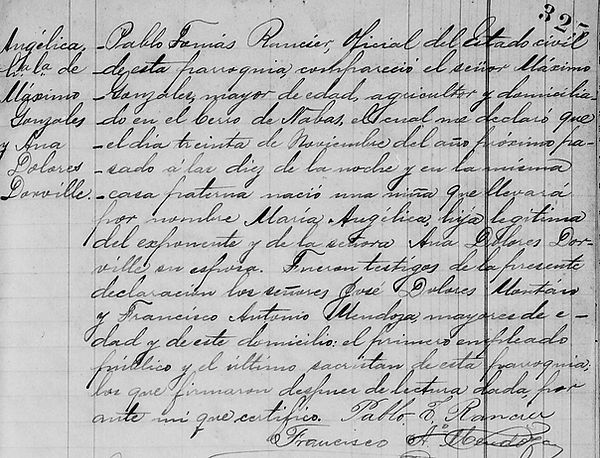 325
Angélica,
l. l. de
Máximo
Gonzales
y Ana
Dolores
Dorville.
Pablo Tomás Rancier, Oficial del Estado civil
de esta parroquia, compareció el señor Máximo
Gonzales, mayor de edad, agricultor y domicilia-
do en el Cerro de Nabas, el cual me declaró que
el día treinta de Noviembre del año próximo pa-
sado á las diez de la noche y en la misma
casa paterna nació una niña que llevará
por nombre María Angélica, hija legítima
del exponente y de la señora Ana Dolores Dor-
ville su esposa. Fueron testigos de la presente
declaración los señores José Dolores Montán
y Francisco Antonio Mendoza, mayores de e-
dad y de este domicilio: el primero empleado
público y el último sacristan de esta parroquia:
los que firmaron despues de lectura dada, por
ante mi que certifico. Pablo T. Rancier
Francisco A. Mendoza